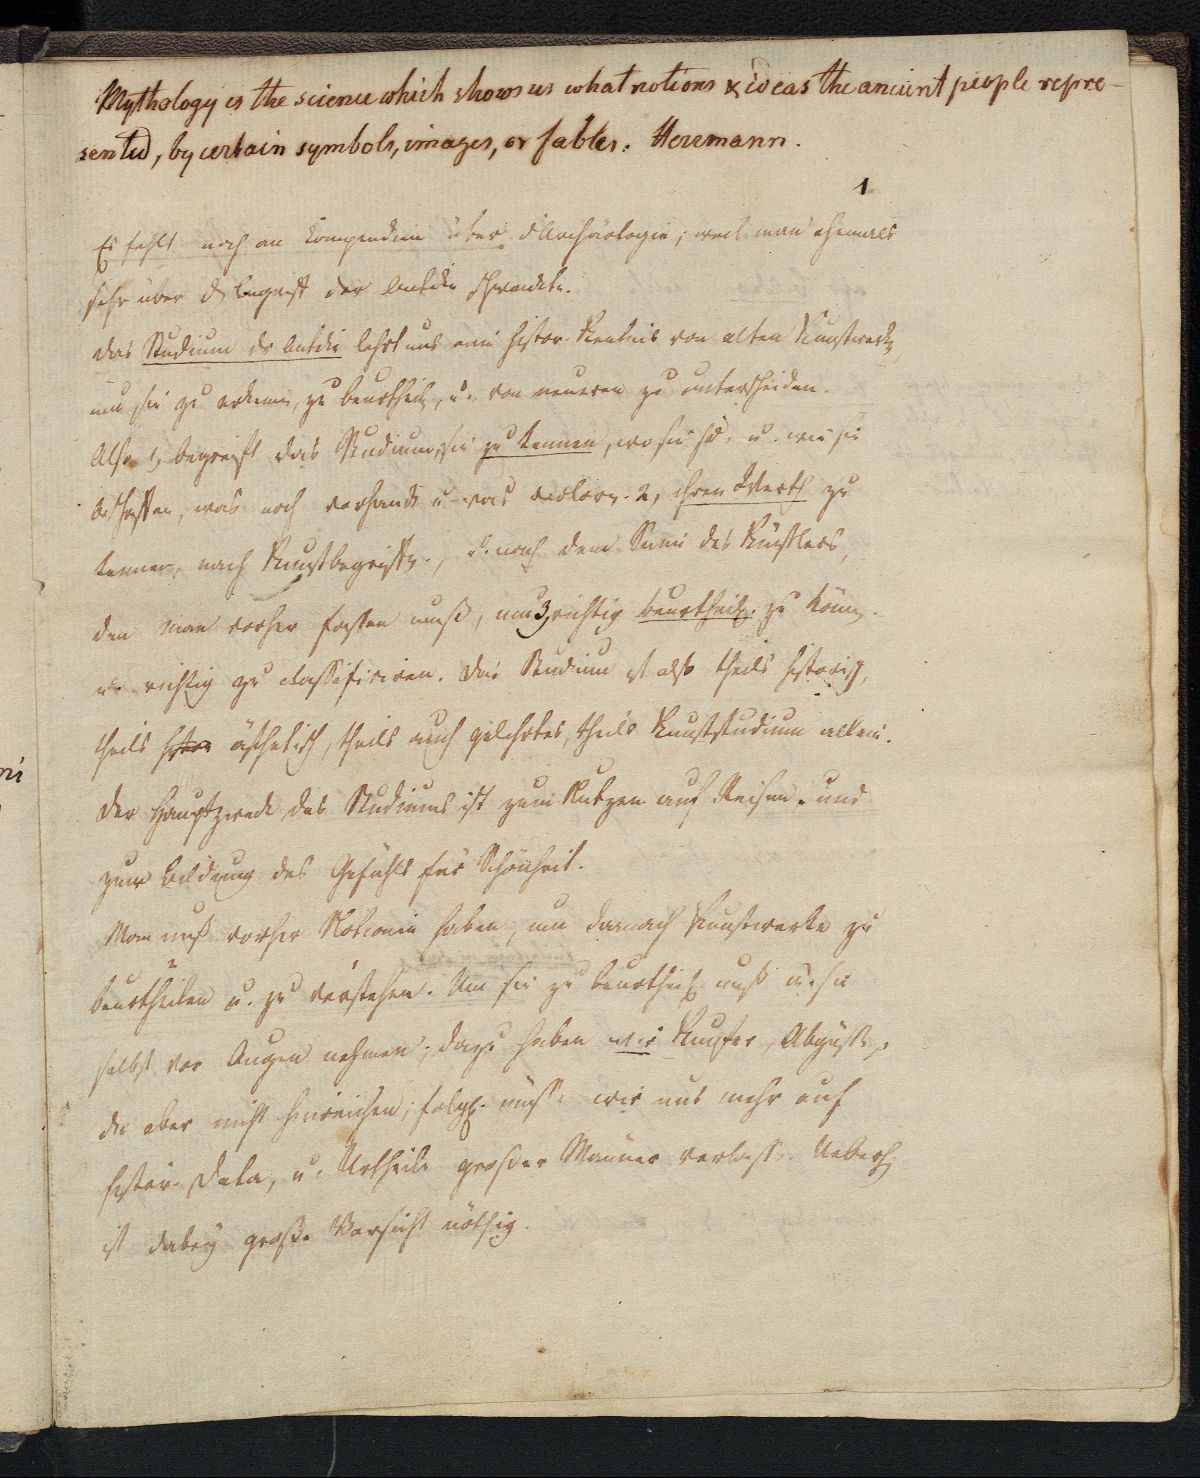 Mythology is the science which shows us what notions & ideas the ancient people repre-
sented, by certain symbols, images, or fables. Herrmann.
1
Es fehlt noch an Compendien über d Archäologie; weil man ehemals
sehr über d Begriff der Antike schwankte.
Das Studium der Antike lehrt uns eine histor. Kentnis von alten Kunstwerk
um sie zu erkennen, zu beurtheil, u. von neueren zu unterscheiden.
Also 1, begreift das Studium, sie zu kennen, wo sie sd, u. wie sie
beschaffen, was noch vorhand u. was verlorn. 2, ihren Werth zu
kennen, nach Kunstbegriffen, u. nach dem Sinne des Künstlers,
den man vorher fassen muß, um 3, richtig beurtheil. zu könn.
u. richtig zu classificiren. Das Studium ist also theils historisch,
theils histor ästhetisch, theils auch gelehrtes, theils Kunststudium allein.
Der Hauptzweck des Studiums ist zum Nutzen auf Reisen, und
zur Bildung des Gefühls für Schönheit.
Man muß vorher Notionen haben, um darnach Kunstwerke zu
beurtheilen u. zu verstehen. Um sie zu beurtheil. muß m. sie
selbst vor Augen nehmen; dazu haben wir Kupfer, Abgüsse,
die aber nicht hinreichen; folgl. müss. wir uns mehr auf
histor. Data, u. Urtheile großer Männer verlass. Ueberh.
ist dabey große Vorsicht nöthig.